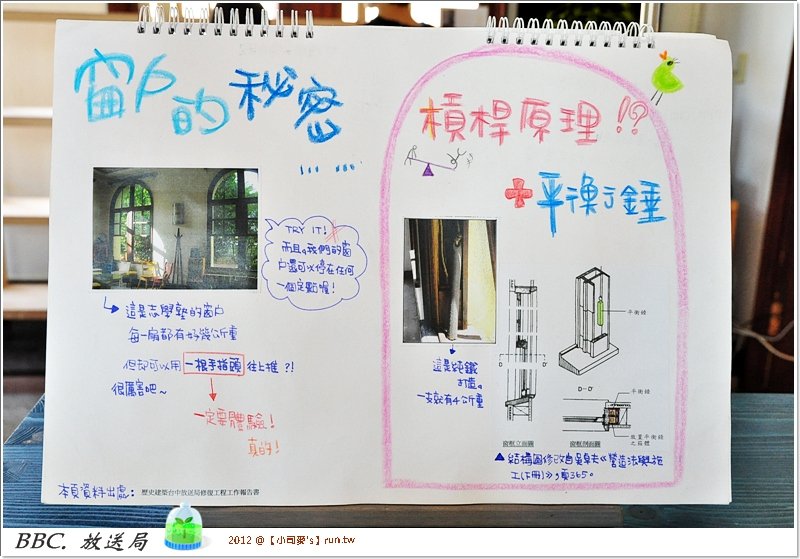 窗戶的秘密
TRY IT!
而且。我們的窗
戶還可以停在任何
一個定點喔！
這是志學塾的窗戶
每一扇都有好幾公斤重
但卻可以用 一根手指頭 往上推?!
很厲害吧~
一定要體驗!
真的!
本頁資料出處: 歷史建築台中放送局修復工程工作報告書
槓桿原理!?
+平衡錘
這是純鐵
打造。
一支就有4公斤重
平衡錘
D
D
D-D'
平衡錘
放置平衡錘
之箱體
窗框立面圖
窗框剖面圖
▲結構圖修改自吳卓夫《營造法與施
工(下冊)》,頁365。
BBC. 放送局
2012 @【小司麥's】run.tw